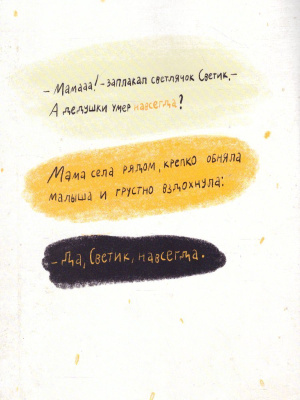 – Мамааа! – заплакал светлячок Светик, –
А дедушки умер навсегда?
Мама села рядом, крепко обняла
малыша и грустно вздохнула:
– Да, Светик, навсегда.